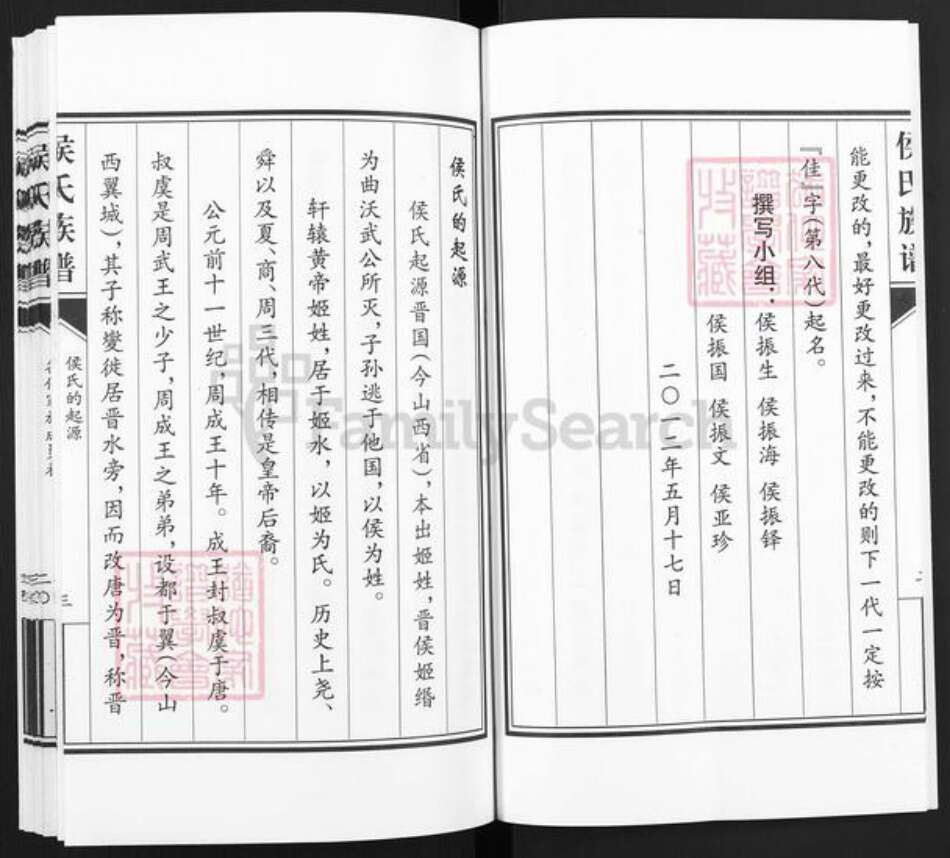 侯氏族谱
能更改的，最好更改过来，不能更改的则下一代一定按
『佳』字（第八代）起名。
撰写小组：侯振生 侯振海 侯振铎
侯振国 侯振文 侯亚珍
二〇一二年五月十七日
侯氏的起源
侯氏起源晋国（今山西省），本出姬姓，晋侯姬缗
为曲沃武公所灭，子孙逃于他国，以侯为姓。
轩辕黄帝姬姓，居于姬水，以姬为氏。历史上尧、
舜以及夏、商、周三代，相传是皇帝后裔。
公元前十一世纪，周成王十年。成王封叔虞于唐。
叔虞是周武王之少子，周成王之弟弟，设都于翼（今山
西翼城），其子称燮徙居晋水旁，因而改唐为晋，称晋
侯氏族谱
侯氏的起源
三
侯氏族谱
FamilySearch